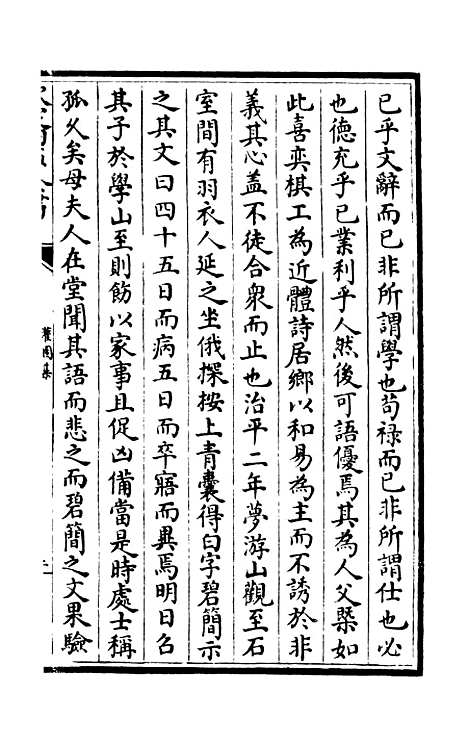 已乎文辭而已非所謂學也苟祿而已非所謂仕也必
也德充乎已業利乎人然後可語優焉其為人父槩如
此喜弈棋工為近體詩居鄉以和易為主而不誘於非
義其心盖不徒合衆而止也治平二年夢游山觀至石
室間有羽衣人延之坐俄探桉上青囊得白字碧簡示
之其文曰四十五日而病五日而卒寤而異焉明日召
其子於學山至則飭以家事且促凶備當是時處士稱
孤久矣母夫人在堂聞其語而悲之而碧簡之文果驗
灌園集